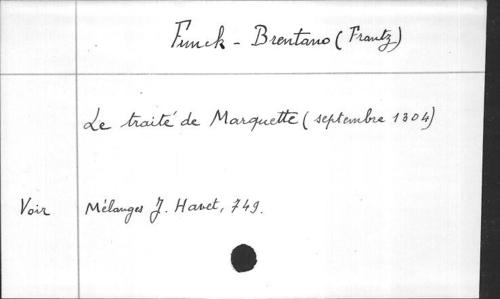 Funck - Brentano (Frantz)
Le traité de Marquette (septembre 1304)
Voir Mélanges J. Havet, 749.